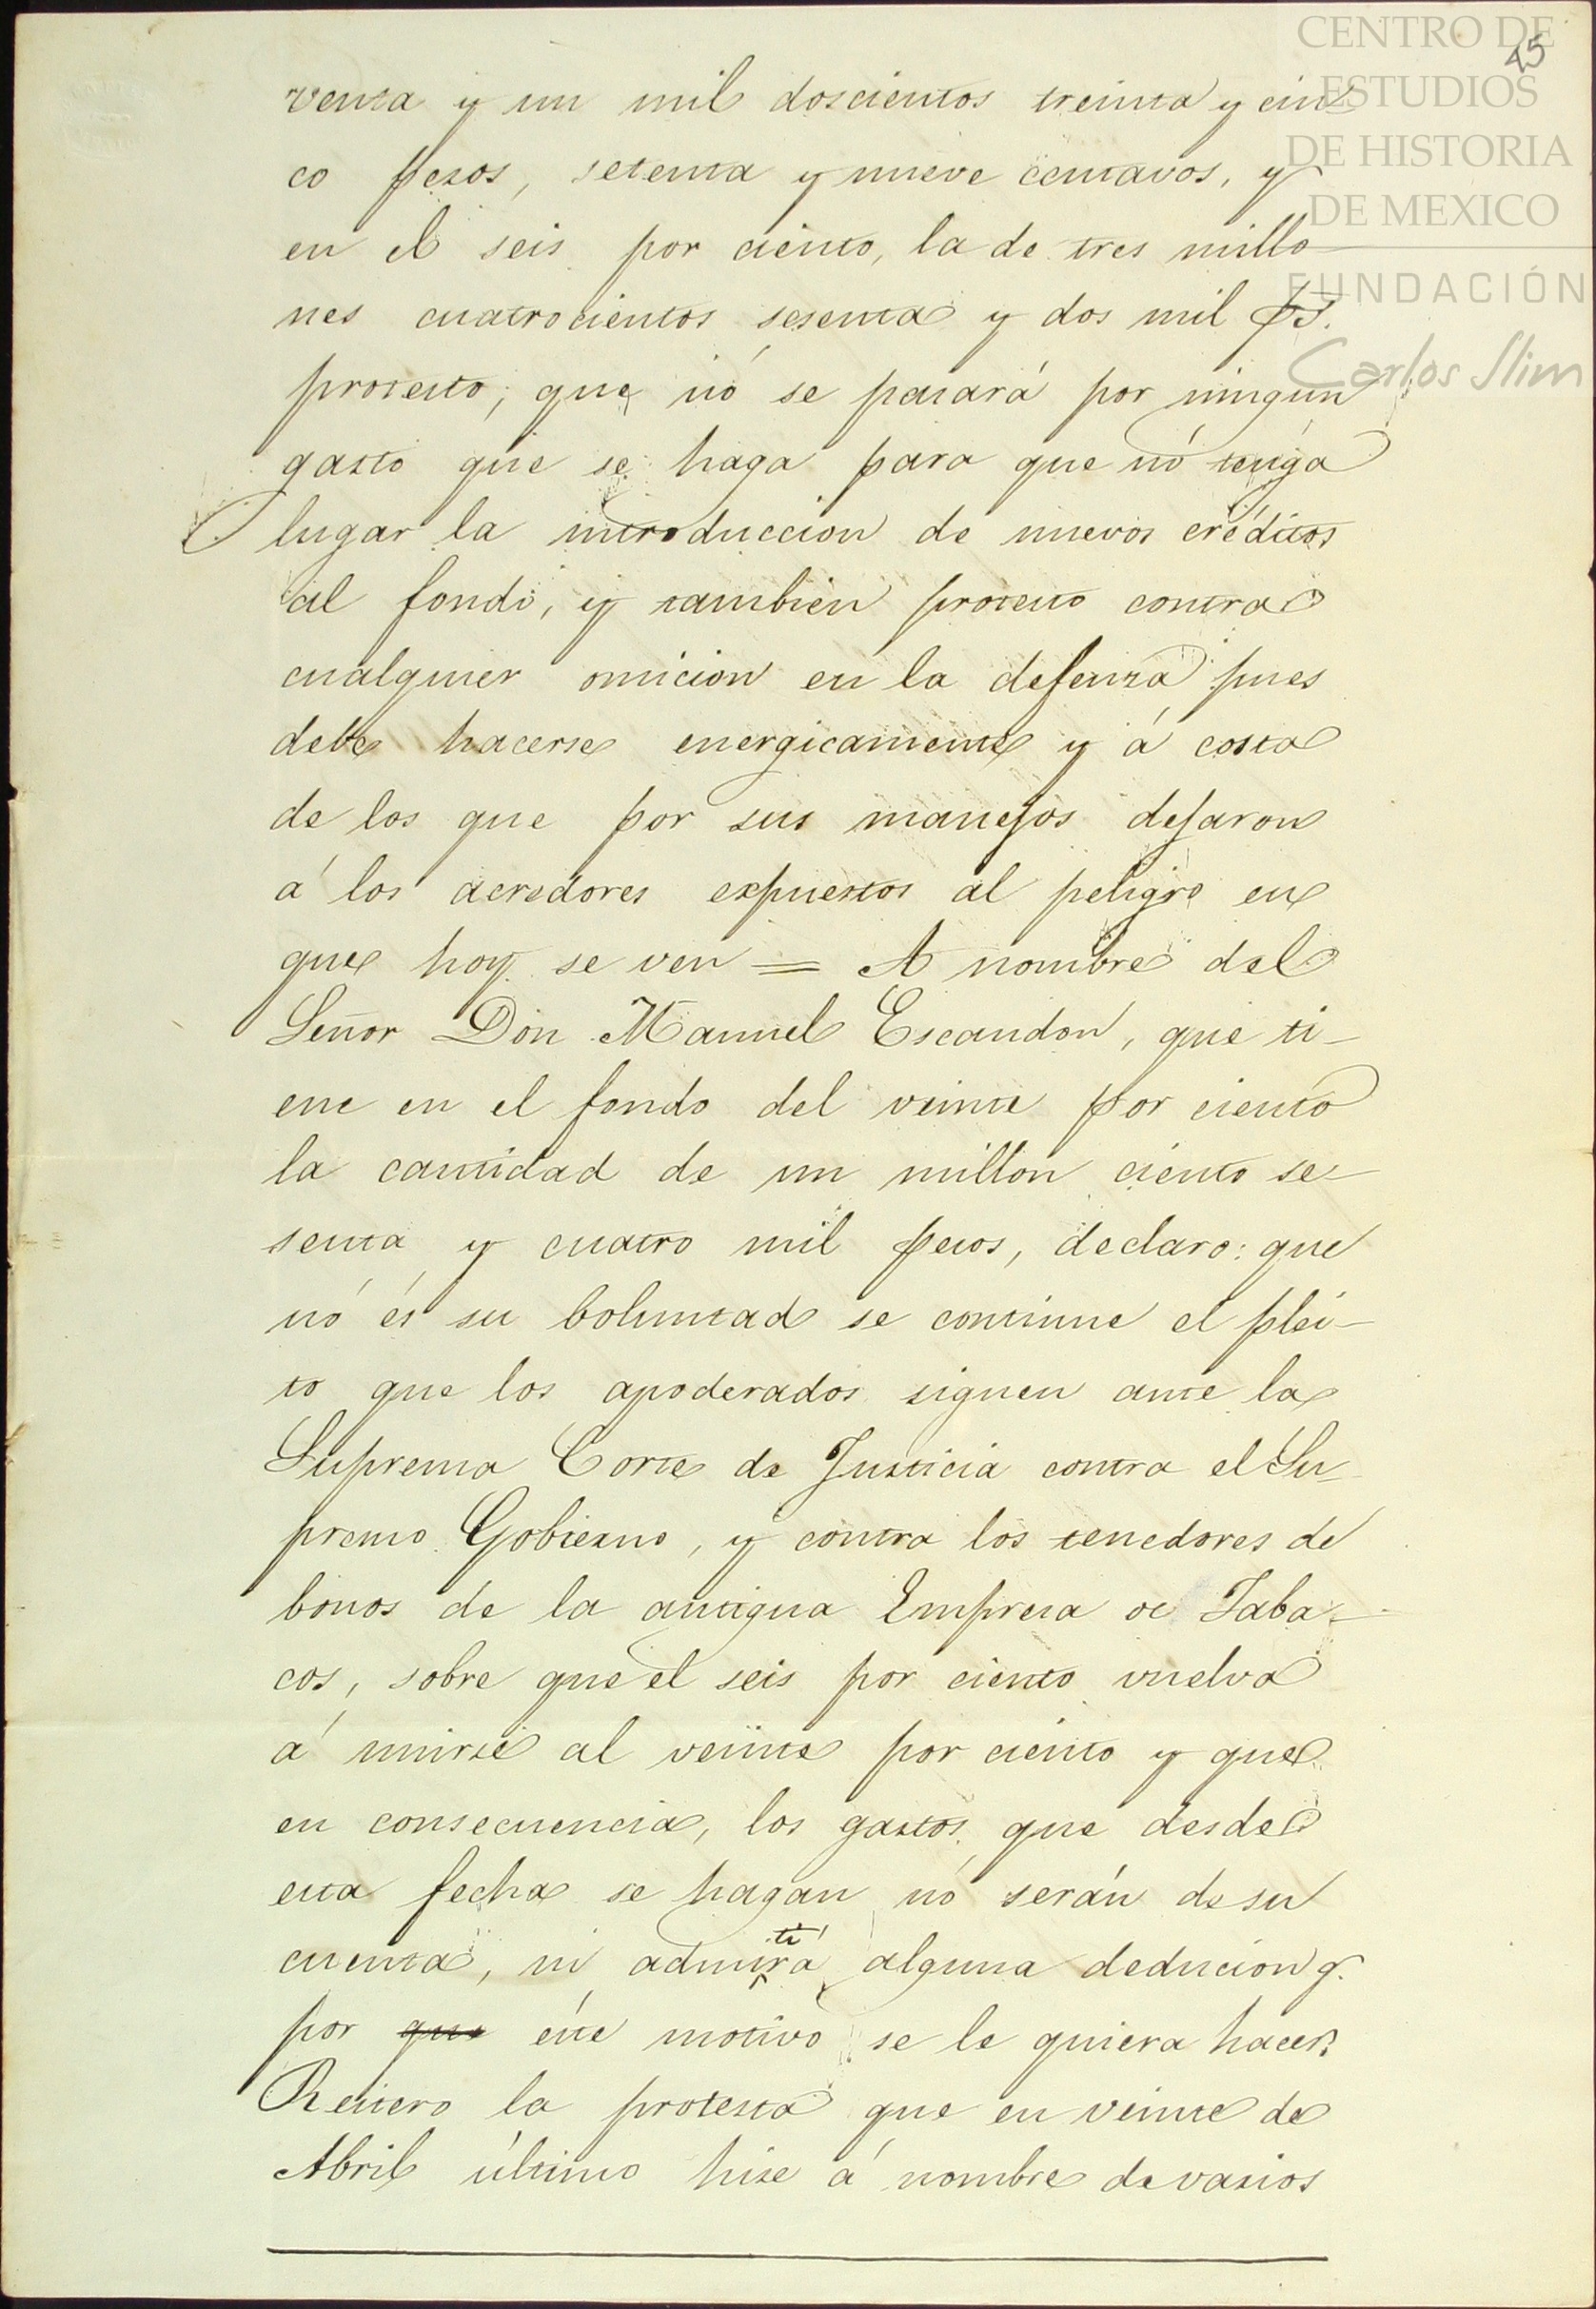 CENTRO DE
ESTUDIOS
DE HISTORIA
DE MEXICO
FUNDACIÓN
Carlos Slim
45
venta y un mil doscientos treinta y cin
co pesos, setenta y nueve centavos, y
en el seis por ciento, la de tres millo
nes cuatrocientos sesenta y dos mil ps.
protesto; que nó se pasará por ningun
gasto que se haga para que nó tenga
lugar la introduccion de nuevos créditos
al fondo, y tambien protesto contra
cualquier omicion en la defenza pues
debe hacerse energicamente y á costa
de los que por sus manejos dejaron
á los acredores expuestos al peligro en
que hoy se ven = A nombre del
Señor Don Manuel Escandon, que ti-
ene en el fondo del veinte por ciento
la cantidad de un millon ciento se-
senta y cuatro mil pesos, declaro: que
nó és su boluntad se continue el plei-
to que los apoderados siguen ante la
Suprema Corte de Justicia contra el Su-
premo Gobierno, y contra los tenedores de
bonos de la antigua Empresa de Taba-
cos, sobre que el seis por ciento vuelva
á unirse al veinte por ciento y que
en consecuencia, los gastos que desde
esta fecha se hagan nó serán de su
cuenta, ni admitirá alguna deducion q.
por que éste motivo se le quiera hacer.
Reitero la protesta que en veinte de
Abril último hise á nombre de varios